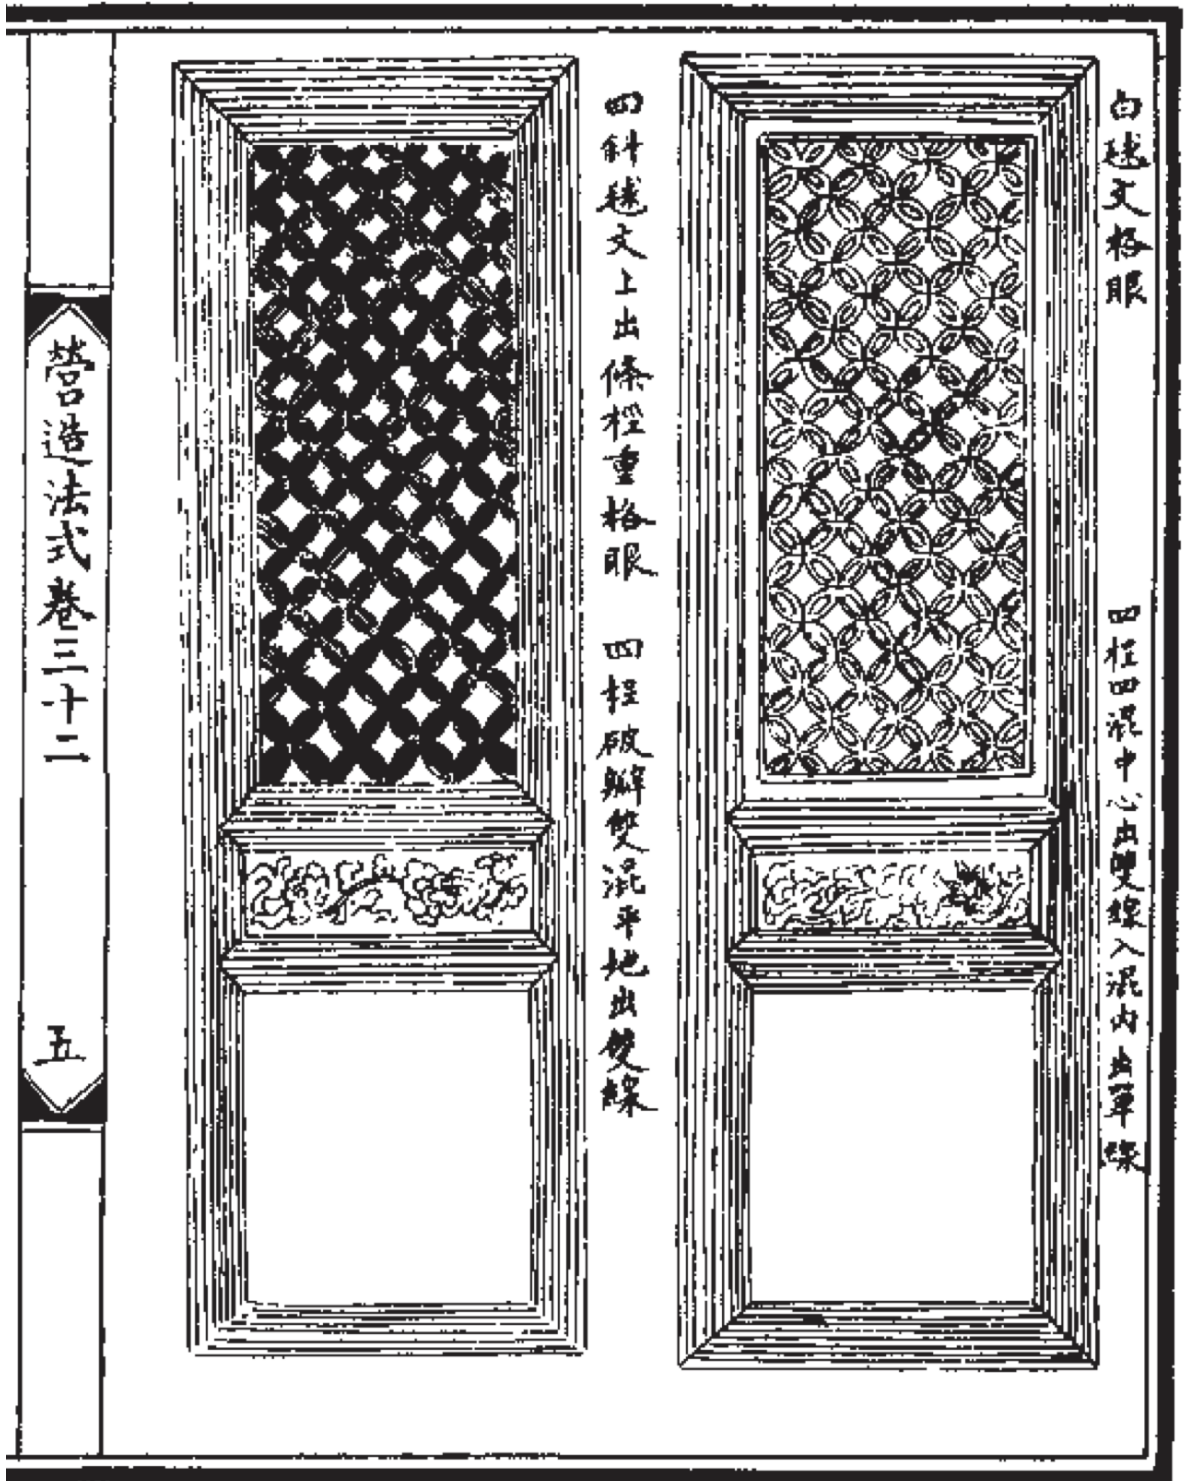 白毬文格眼
四桯四混中心出雙線入混內出單線
四斜毬文上出條桱重格眼
四桯破瓣雙混平地出雙線
營造法式卷三十二
五